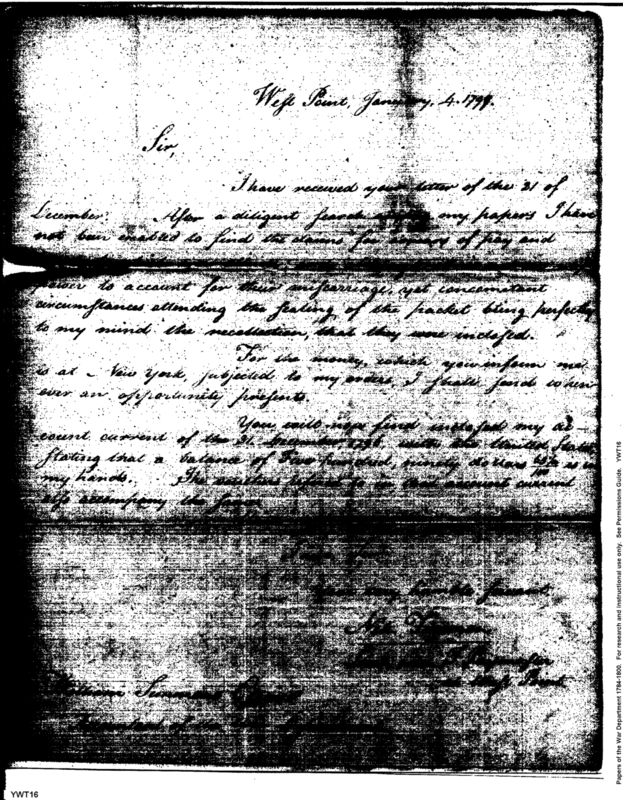 West Point, January, 4. 1799.
Sir,
I have received your letter of the 31 of
December. After a diligent search my papers I have
not been enabled to find the claims for of pay and
power to account for their miscarriage, yet concomitant
circumstances attending the sealing of the packet bring perfectly
to my mind the recollection, that they were inclosed.
For the money, which you inform me
is at New York, subjected to my orders, I shall send when
ever an opportunity presents.
You will now find inclosed my ac-
count current of the 31, December 1798, with the United States
stating that a balance of Five hundred, ninety dollars is in
my hands. The vouchers referred to in account current
also accompany the same.
Your very humble servant
Paymaster
West Point
William Simmons Esquire
Papers of the War Department 1784-1800. For research and instructional use only. See Permissions Guide. YWT16
YWT16